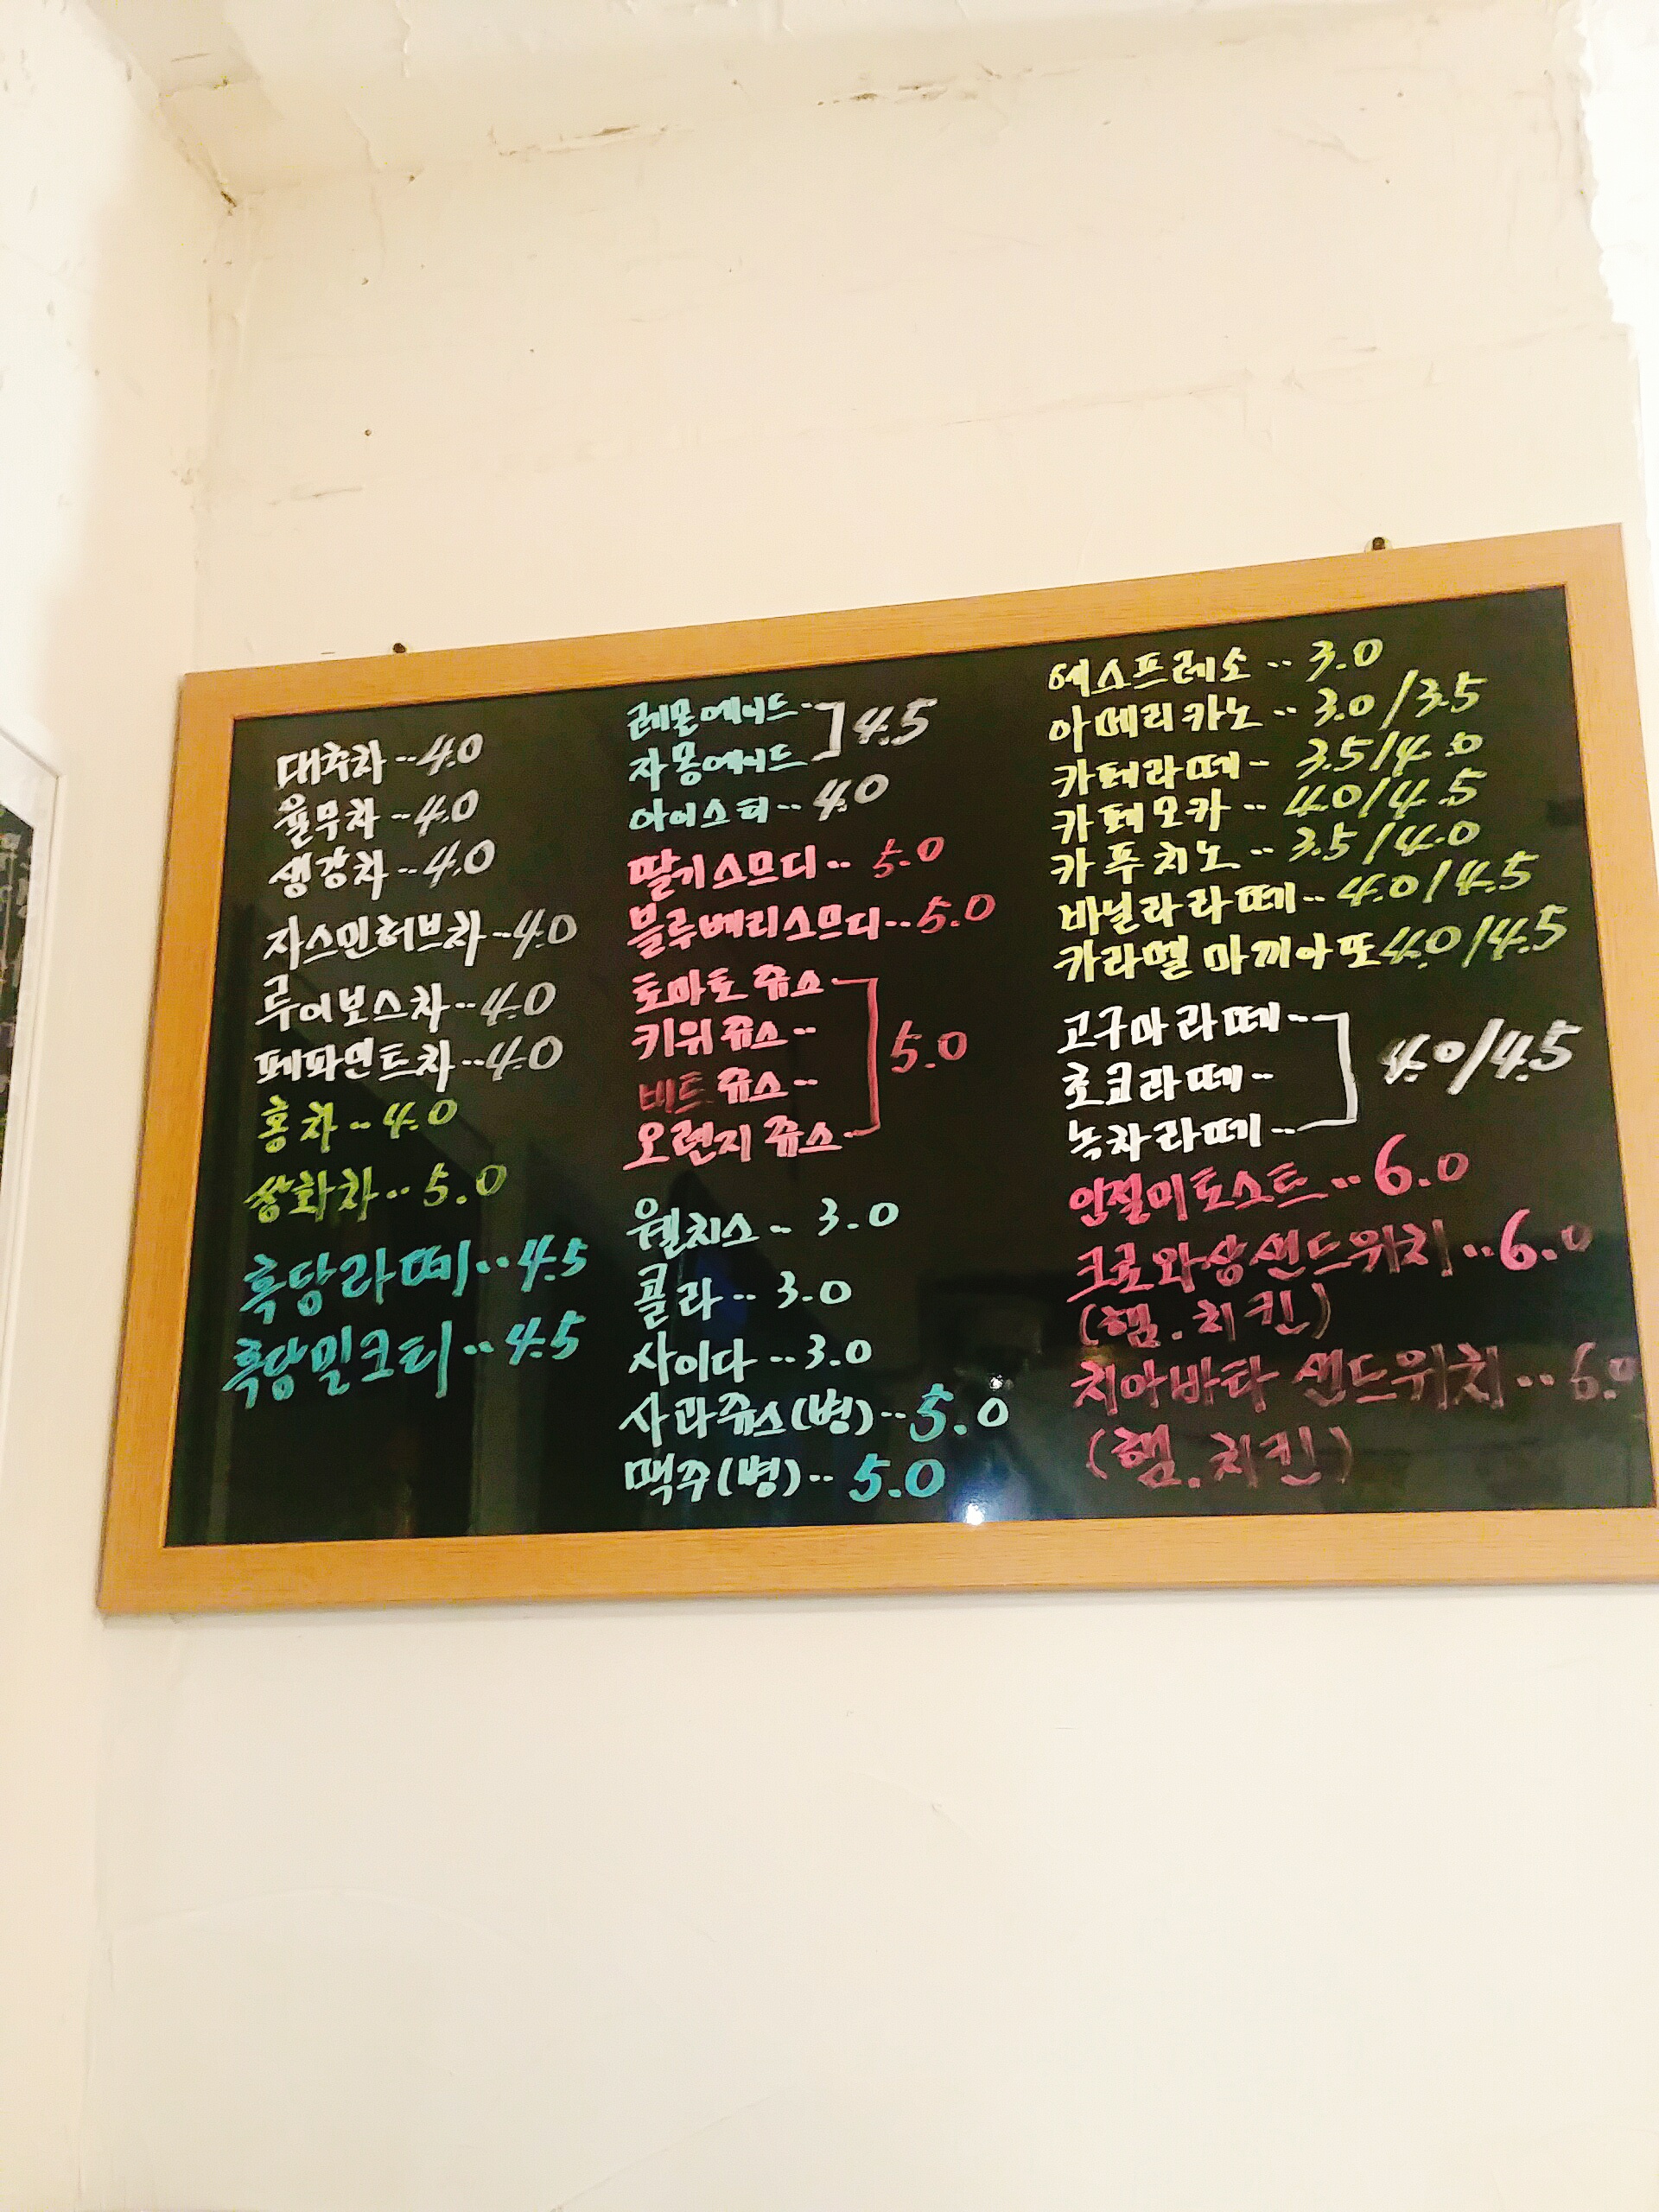 대추차··4.0
율무차··4.0
생강차··4.0
자스민허브차··4.0
루이보스차··4.0
페파민트차··4.0
홍차··4.0
쌍화차··5.0
흑당라떼··4.5
흑당밀크티··4.5
레몬에이드··
자몽에이드
4.5
아이스티··4.0
딸기스므디··5.0
블루베리스므디··5.0
토마토쥬스
키위쥬스··
비트쥬스··
오렌지쥬스··
5.0
웰치스··3.0
콜라··3.0
사이다··3.0
사과쥬스(병)··5.0
맥주(병)··5.0
에스프레소··3.0
아메리카노··3.0/3.5
카페라떼··3.5/4.0
카페모카··4.0/4.5
카푸치노··3.5/4.0
바닐라라떼··4.0/4.5
카라멜 마끼아또4.0/4.5
고구마라떼··
초코라떼··
녹차라떼··
4.0/4.5
인절미토스트··6.0
크로와상샌드위치··6.0
(햄.치킨)
치아바타 샌드위치··6.0
(햄.치킨)